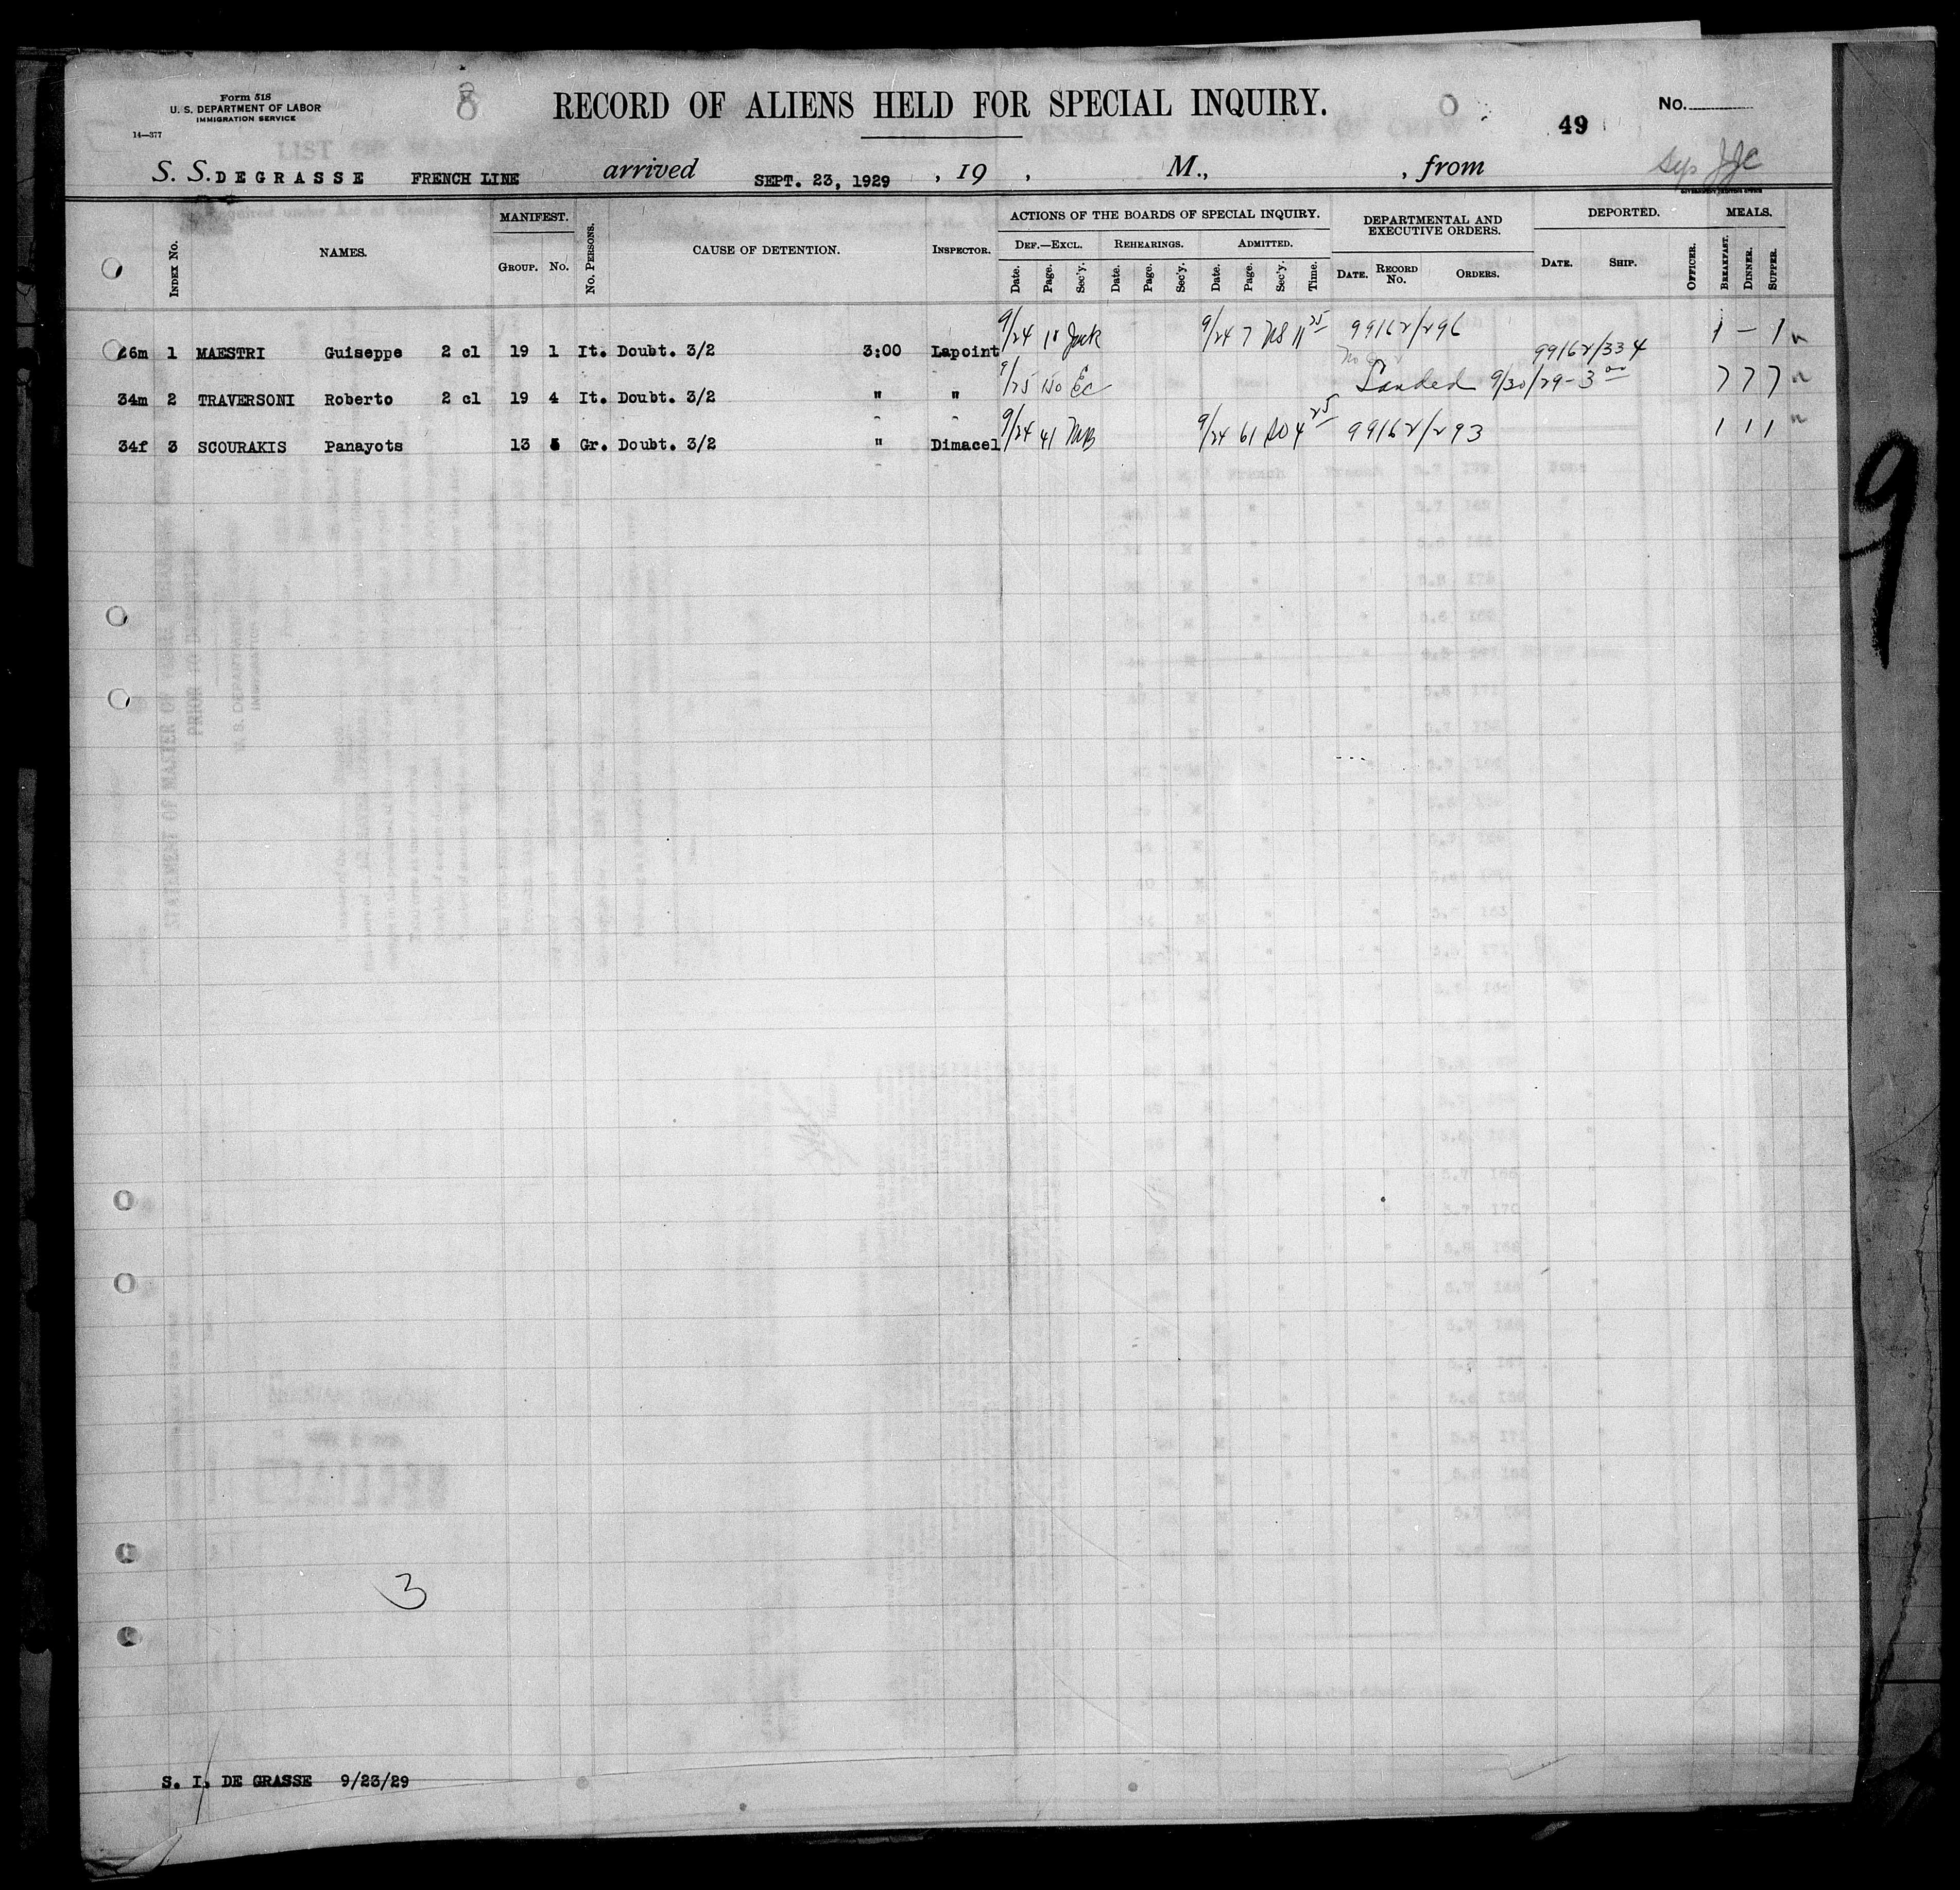 Form 518
U. S. DEPARTMENT OF LABOR
IMMIGRATION SERVICE
14—377
8
RECORD OF ALIENS HELD FOR SPECIAL INQUIRY.
49
No.
S. S. DEGRASSE FRENCH LINE arrived SEPT. 23, 1929 , 19 , M., , from
JJC
INDEX No. NAMES. MANIFEST. GROUP. No. No. PERSONS. CAUSE OF DETENTION. INSPECTOR.
ACTIONS OF THE BOARDS OF SPECIAL INQUIRY. DEF.—EXCL. Date. Page. Sec'y. REHEARINGS. Date. Page. Sec'y. ADMITTED. Date. Page. Sec'y. Time.
DEPARTMENTAL AND EXECUTIVE ORDERS. DATE. RECORD No. ORDERS.
DEPORTED. DATE. SHIP. OFFICER. MEALS. BREAKFAST. DINNER. SUPPER.
26m 1 MAESTRI Guiseppe 2 cl 19 1 It. Doubt. 3/2 3:00 Lapoint 9/24 18 9/24 7 11 25 99162/296 1 – 1
99162/334
34m 2 TRAVERSONI Roberto 2 cl 19 4 It. Doubt. 3/2 " " 9/25 150 Ec Landed 9/30/29-3 00 7 7 7
34f 3 SCOURAKIS Panayots 13 5 Gr. Doubt. 3/2 " Dimacel 9/24 41 MB 9/24 61 4 25 99162/293 1 1 1
9
3
S. I. DE GRASSE 9/23/29